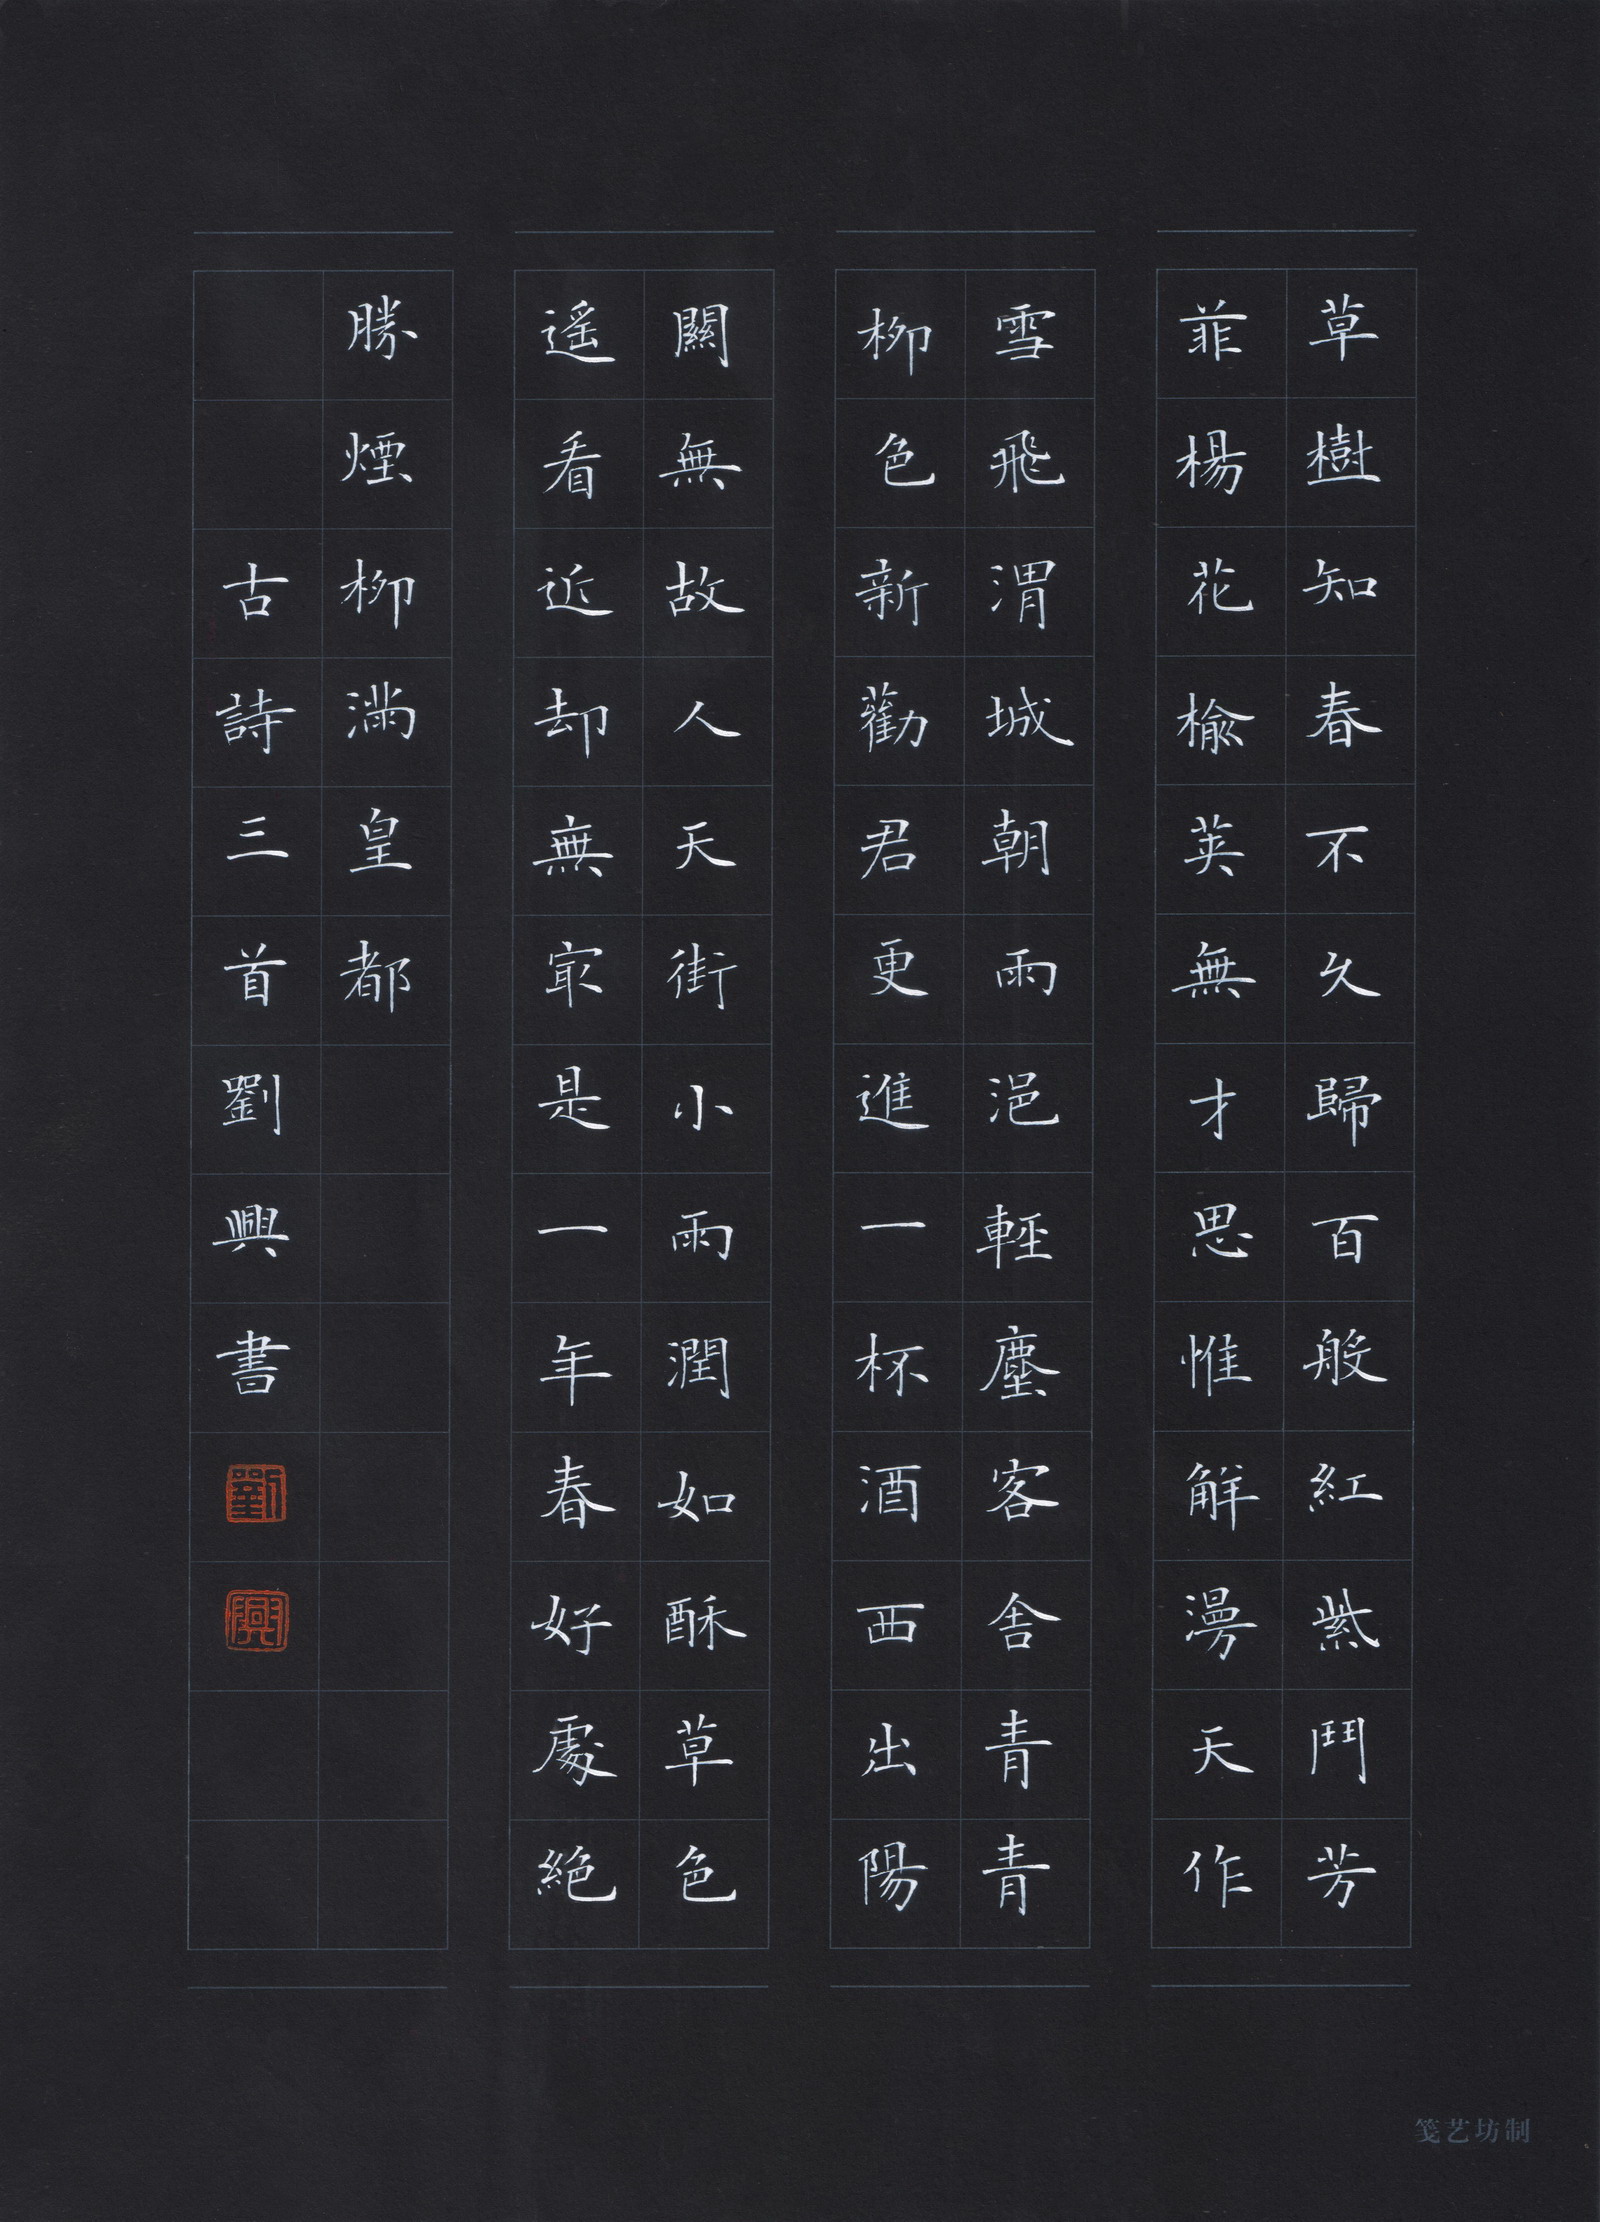 草樹知春不久歸百般紅紫鬥芳
菲楊花榆莢無才思惟解漫天作
雪飛渭城朝雨浥輕塵客舍青青
柳色新勸君更進一杯酒西出陽
關無故人天街小雨潤如酥草色
遥看近却無冣是一年春好處絕
勝煙柳滿皇都
古詩三首劉興書
劉
興
笺艺坊制